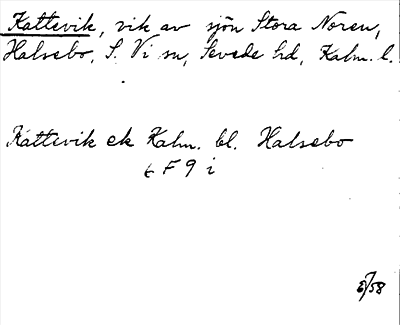 Kattevik, vik av sjön Stora Noren,
Halsebo, S. Vi sn, Sevede hd, Kalm. l.
Kattevik ek Kalm. bl. Halsebo
6 F 9 i